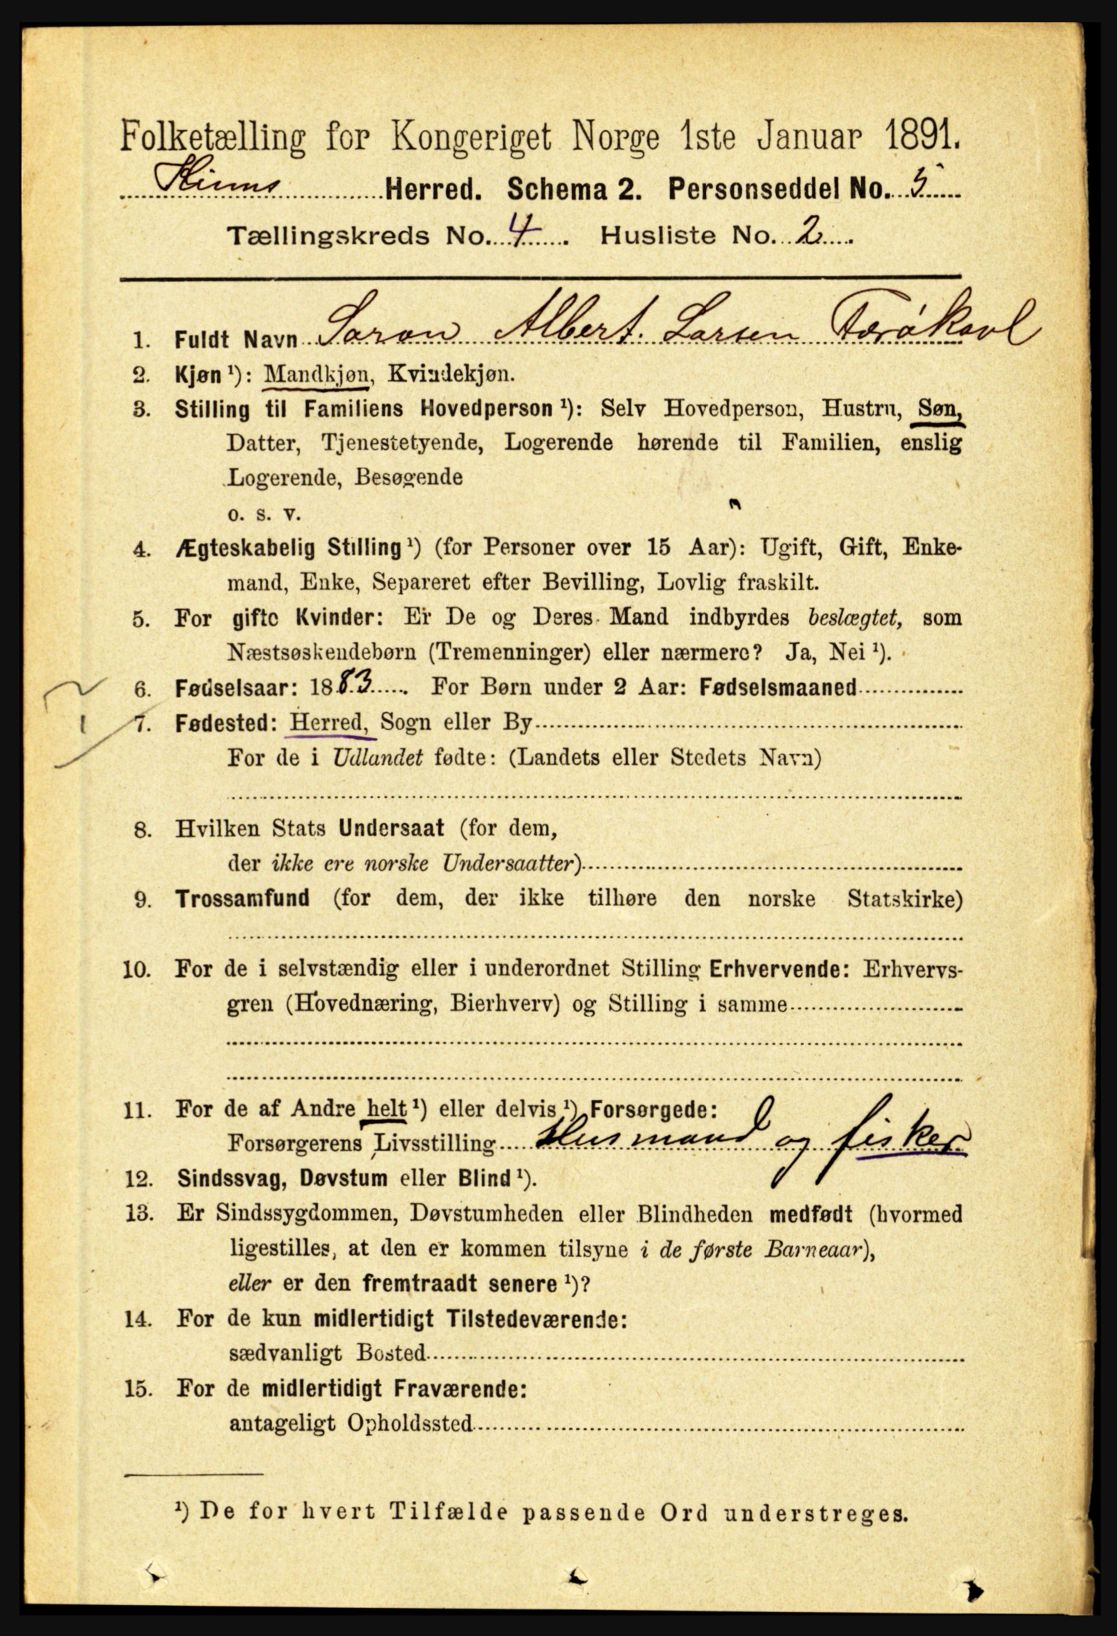 Folketælling for Kongeriget Norge 1ste Januar 1891.
Kinns Herred. Schema 2. Personseddel No. 5
Tællingskreds No. 4. Husliste No. 2.
1. Fuldt Navn Søren Albert Larsen Færøkavl
2. Kjøn ¹): Mandkjøn, Kvindekjøn.
3. Stilling til Familiens Hovedperson ¹): Selv Hovedperson, Hustru, Søn,
Datter, Tjenestetyende, Logerende hørende til Familien, enslig
Logerende, Besøgende
o. s. v.
4. Ægteskabelig Stilling ¹) (for Personer over 15 Aar): Ugift, Gift, Enke-
mand, Enke, Separeret efter Bevilling, Lovlig fraskilt.
5. For gifte Kvinder: Er De og Deres Mand indbyrdes beslægtet, som
Næstsøskendebørn (Tremenninger) eller nærmere? Ja, Nei ¹).
6. Fødselsaar: 1883. For Børn under 2 Aar: Fødselsmaaned
7. Fødested: Herred, Sogn eller By
For de i Udlandet fødte: (Landets eller Stedets Navn)
8. Hvilken Stats Undersaat (for dem,
der ikke ere norske Undersaatter)
9. Trossamfund (for dem, der ikke tilhøre den norske Statskirke)
10. For de i selvstændig eller i underordnet Stilling Erhvervende: Erhvervs-
gren (Hovednæring, Bierhverv) og Stilling i samme
11. For de af Andre helt ¹) eller delvis ¹) Forsørgede:
Forsørgerens Livsstilling Husmand og fisker.
12. Sindssvag, Døvstum eller Blind ¹).
13. Er Sindssygdommen, Døvstumheden eller Blindheden medfødt (hvormed
ligestilles, at den er kommen tilsyne i de første Barneaar),
eller er den fremtraadt senere ¹)?
14. For de kun midlertidigt Tilstedeværende:
sædvanligt Bosted
15. For de midlertidigt Fraværende:
antageligt Opholdssted
¹) De for hvert Tilfælde passende Ord understreges.